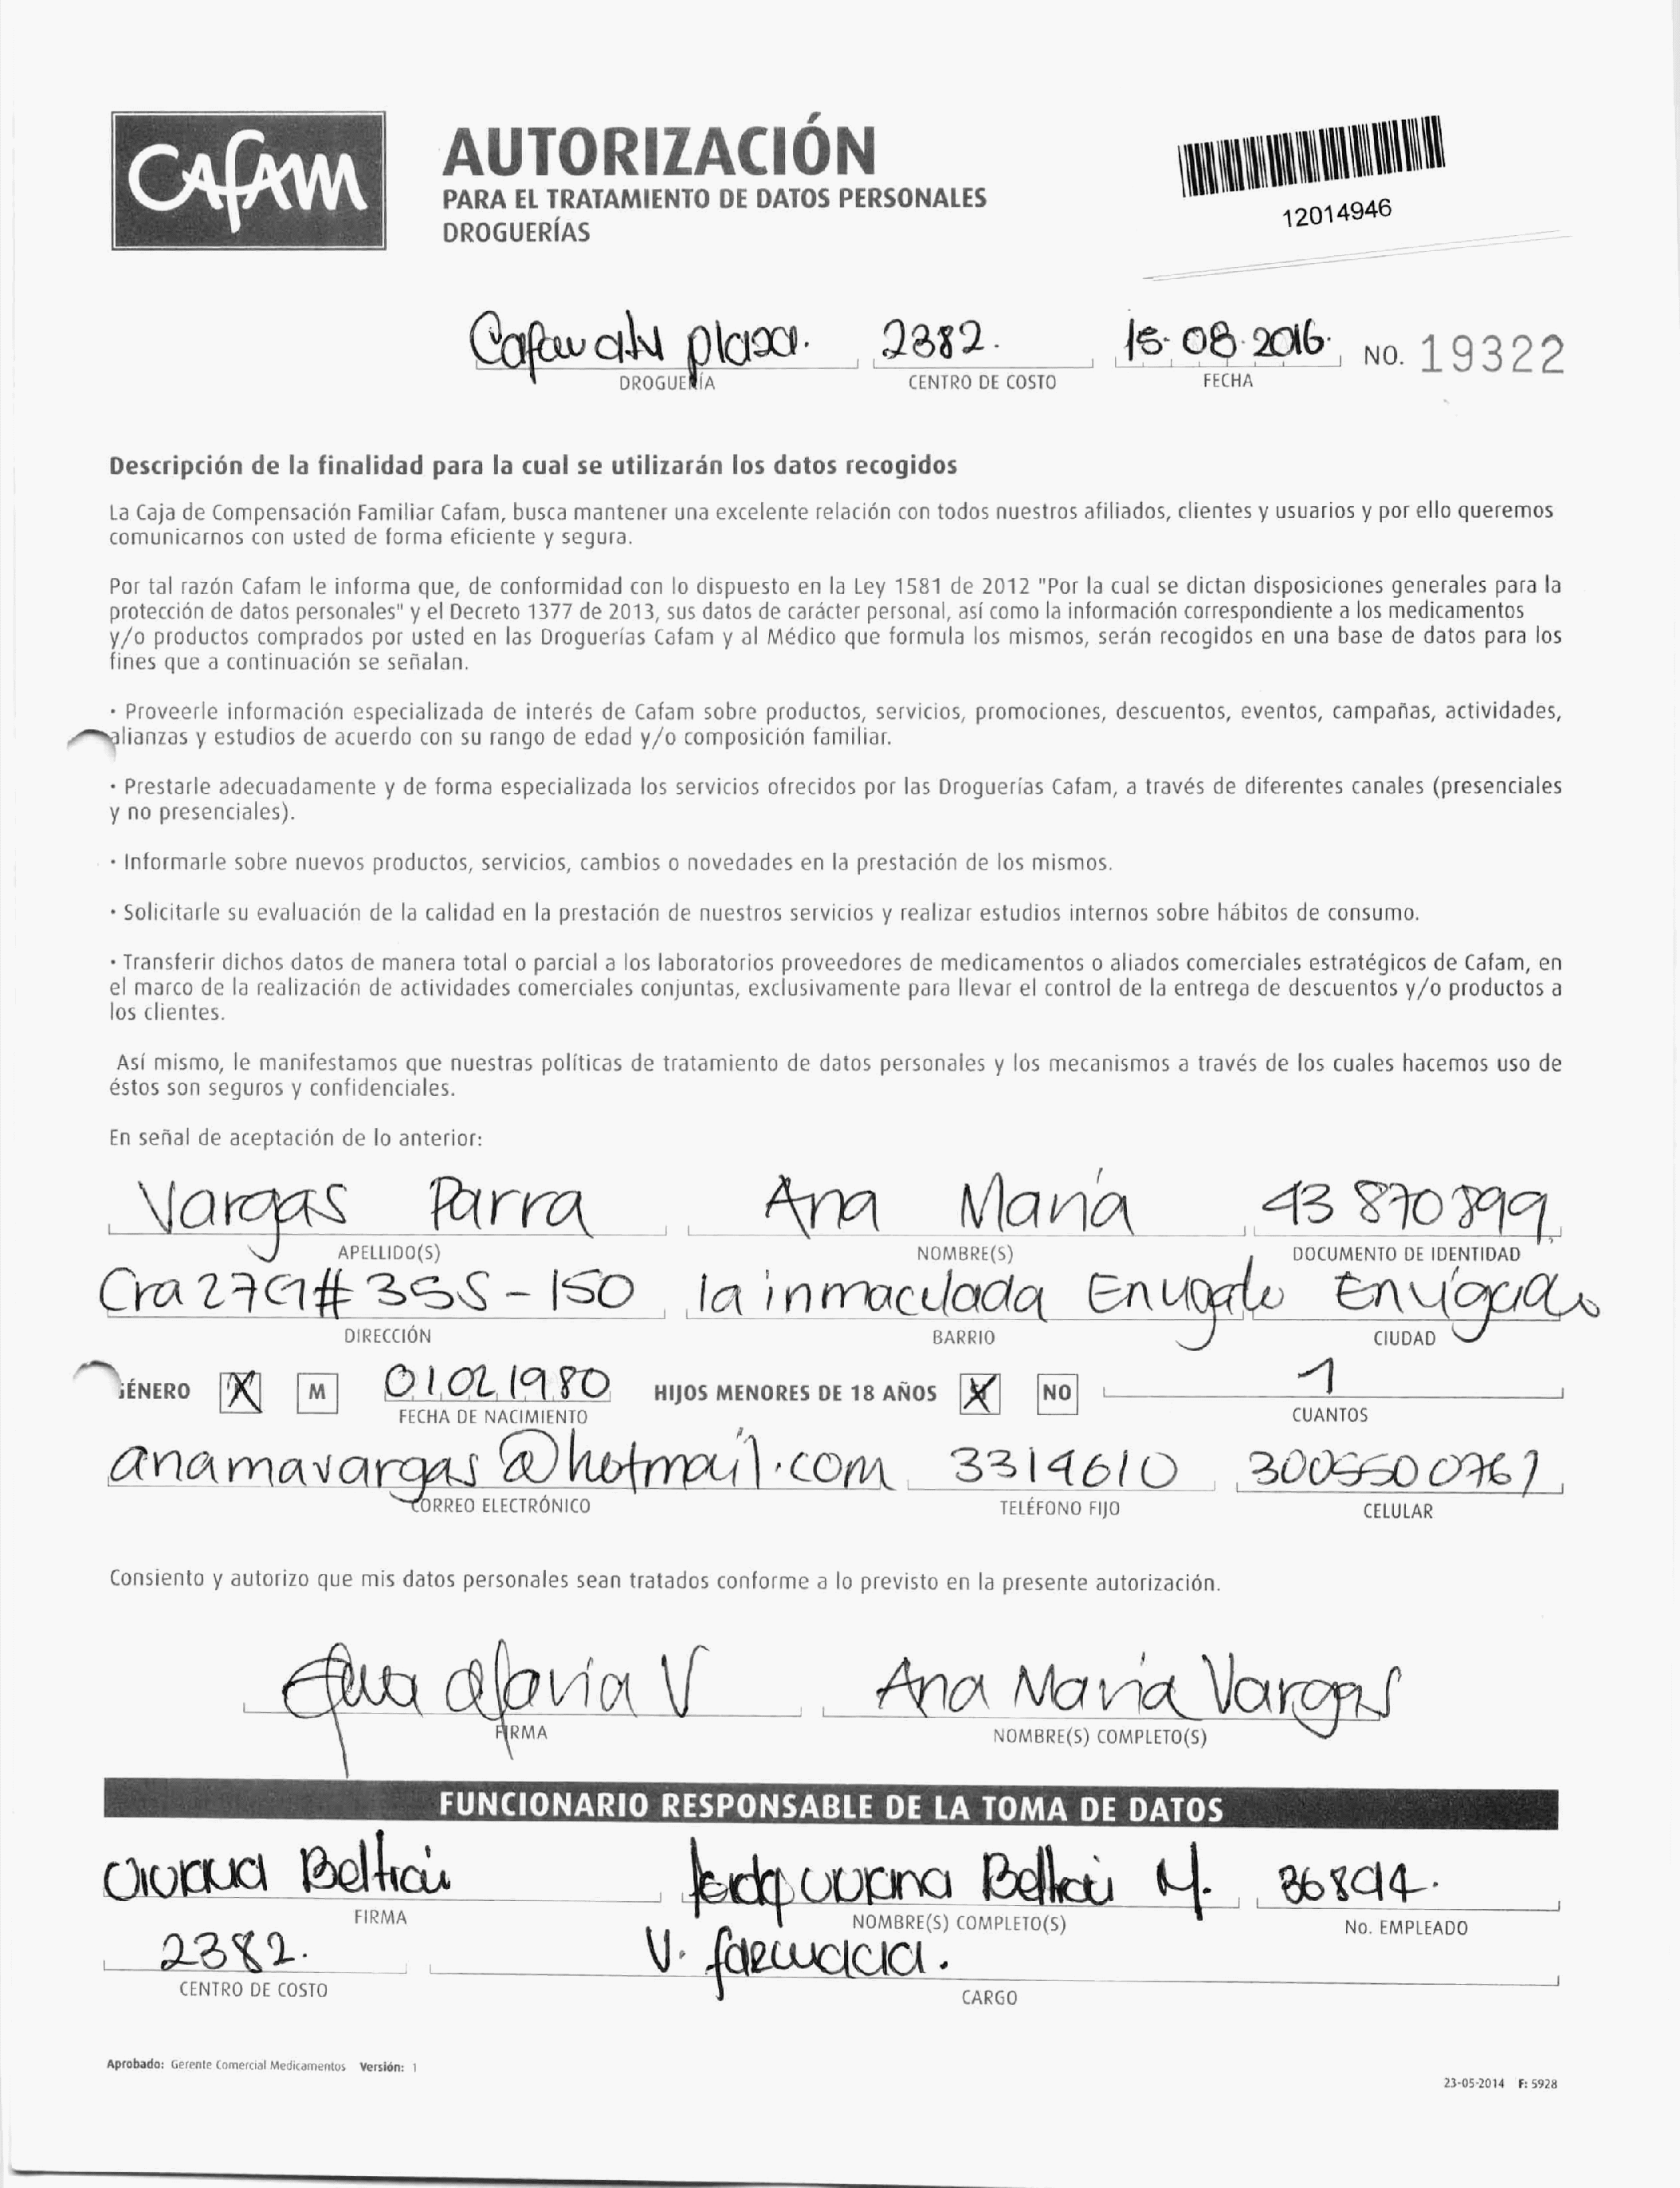 Cafam
AUTORIZACIÓN
PARA EL TRATAMIENTO DE DATOS PERSONALES
DROGUERÍAS
12014946
plaza. 2382. 15.08.2016. NO. 19322
DROGUERÍA CENTRO DE COSTO FECHA
Descripción de la finalidad para la cual se utilizarán los datos recogidos
La Caja de Compensación Familiar Cafam, busca mantener una excelente relación con todos nuestros afiliados, clientes y usuarios y por ello queremos
comunicarnos con usted de forma eficiente y segura.
Por tal razón Cafam le informa que, de conformidad con lo dispuesto en la Ley 1581 de 2012 "Por la cual se dictan disposiciones generales para la
protección de datos personales" y el Decreto 1377 de 2013, sus datos de carácter personal, así como la información correspondiente a los medicamentos
y/o productos comprados por usted en las Droguerías Cafam y al Médico que formula los mismos, serán recogidos en una base de datos para los
fines que a continuación se señalan.
· Proveerle información especializada de interés de Cafam sobre productos, servicios, promociones, descuentos, eventos, campañas, actividades,
alianzas y estudios de acuerdo con su rango de edad y/o composición familiar.
· Prestarle adecuadamente y de forma especializada los servicios ofrecidos por las Droguerías Cafam, a través de diferentes canales (presenciales
y no presenciales).
· Informarle sobre nuevos productos, servicios, cambios o novedades en la prestación de los mismos.
· Solicitarle su evaluación de la calidad en la prestación de nuestros servicios y realizar estudios internos sobre hábitos de consumo.
· Transferir dichos datos de manera total o parcial a los laboratorios proveedores de medicamentos o aliados comerciales estratégicos de Cafam, en
el marco de la realización de actividades comerciales conjuntas, exclusivamente para llevar el control de la entrega de descuentos y/o productos a
los clientes.
Así mismo, le manifestamos que nuestras políticas de tratamiento de datos personales y los mecanismos a través de los cuales hacemos uso de
éstos son seguros y confidenciales.
En señal de aceptación de lo anterior:
Vargas Parra Ana María 43 870 899
APELLIDO(S) NOMBRE(S) DOCUMENTO DE IDENTIDAD
Cra 27G # 35S - 150 la inmaculada Envigado
DIRECCIÓN BARRIO CIUDAD
GÉNERO X M 01 02 1980 HIJOS MENORES DE 18 AÑOS X NO 1
FECHA DE NACIMIENTO CUANTOS
anamavargas@hotmail.com 3314610 3005500761
CORREO ELECTRÓNICO TELÉFONO FIJO CELULAR
Consiento y autorizo que mis datos personales sean tratados conforme a lo previsto en la presente autorización.
Ana Maria V Ana Maria Vargas
FIRMA NOMBRE(S) COMPLETO(S)
FUNCIONARIO RESPONSABLE DE LA TOMA DE DATOS
Beltrán Beltrán M. 36894.
FIRMA NOMBRE(S) COMPLETO(S) No. EMPLEADO
2382. V. farmacia.
CENTRO DE COSTO CARGO
Aprobado: Gerente Comercial Medicamentos Versión: 1
23-05-2014 F: 5928